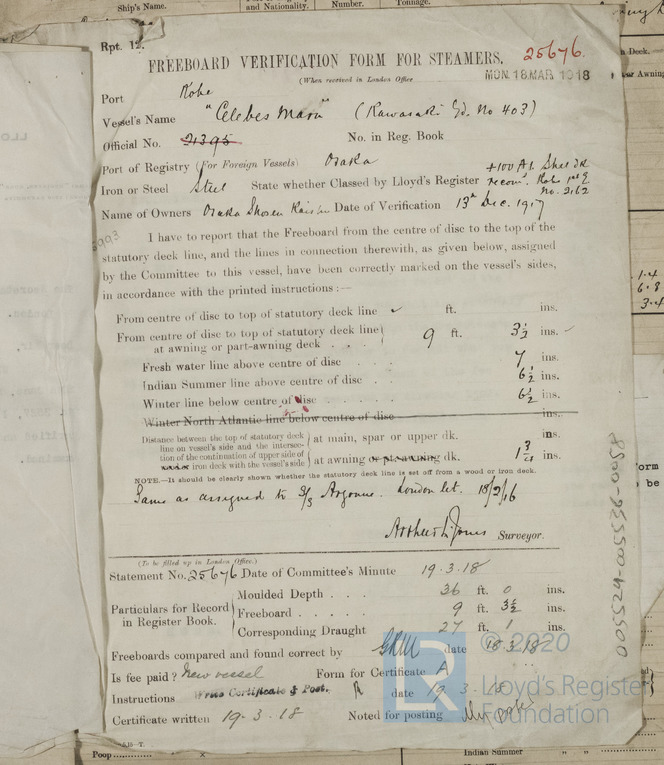 Ship's Name.
and Nationality.
Number.
Tonnage.
Rpt. 12.
FREEBOARD VERIFICATION FORM FOR STEAMERS.
25676.
(When received in London Office
MON. 18 MAR 1918
Port Kobe
Vessel's Name "Celebes Maru" (Kawasaki Yd. No 403)
Official No. 21395 No. in Reg. Book
Port of Registry (For Foreign Vessels) Osaka
+100 A1. Shel dk
Iron or Steel Steel State whether Classed by Lloyd's Register recom. Kobe
No. 2162
Name of Owners Osaka Shosen Kaisha Date of Verification 13th Dec. 1917
I have to report that the Freeboard from the centre of disc to the top of the
statutory deck line, and the lines in connection therewith, as given below, assigned
by the Committee to this vessel, have been correctly marked on the vessel's sides,
in accordance with the printed instructions :—
From centre of disc to top of statutory deck line ft. ins.
From centre of disc to top of statutory deck line
at awning or part-awning deck 9 ft. 3½ ins.
Fresh water line above centre of disc 7 ins.
Indian Summer line above centre of disc 6½ ins.
Winter line below centre of disc 6½ ins.
Winter North Atlantic line below centre of disc ins.
Distance between the top of statutory deck
line on vessel's side and the intersec-
tion of the continuation of upper side of
iron deck with the vessel's side
at main, spar or upper dk. ins.
at awning or pt. awning dk. ins.
NOTE.—It should be clearly shown whether the statutory deck line is set off from a wood or iron deck.
Same as assigned to S/S Argonne. London let. 18/2/16
Surveyor.
(To be filled up in London Office.)
Statement No. 25676 Date of Committee's Minute 19.3.18
Particulars for Record
in Register Book.
Moulded Depth 36 ft. 0 ins.
Freeboard 9 ft. 3½ ins.
Corresponding Draught 27 ft. 1 ins.
Freeboards compared and found correct by date 18.3.18
Is fee paid? New vessel Form for Certificate A
Instructions Write Certificate & Post. date 19.3.18
Certificate written 19.3.18 Noted for posting
005524-005536-0058
LR
© 2020
Lloyd's Register
Foundation
Poop
Indian Summer